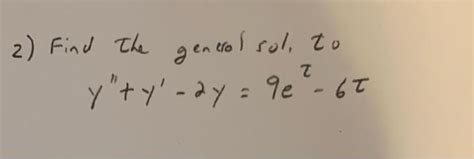 2) Find the general sol. to
y" + y' - 2y = 9e^τ - 6τ